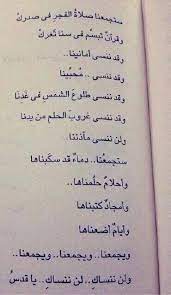 ستجمعنا صلاةُ الفجر فى صدركْ
وقرآنٌ تبسَّم فى سنا ثغركْ
وقد ننسى أمانينا..
وقد ننسى .. مُحبِّينا
وقد ننسى طلوعَ الشمسِ فى غدنا
وقد ننسى غروبَ الحلم من يدنا
ولن ننسى مآذننا ..
ستجمعُنا.. دماءٌ قد سكبناها
وأحلامٌ حلُمناها ..
وأمجادٌ كتبناها
وأيامٌ أضعناها
ويجمعنا.. ويجمعنا.. ويجمعنا..
ولن ننساكِ.. لن ننساكِ.. يا قدسُ